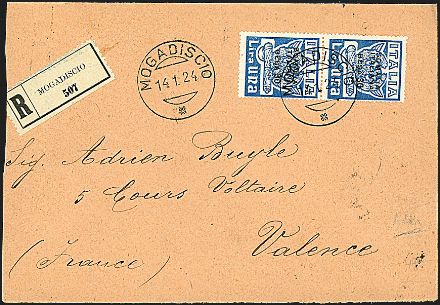 R
MOGADISCIO
507
MOGADISCIO
14.1.24
ITALIA
LIRA UNA
ITALIA
LIRA UNA
Sig. Adrien Buyle
5 Cours Voltaire
Valence
(France)